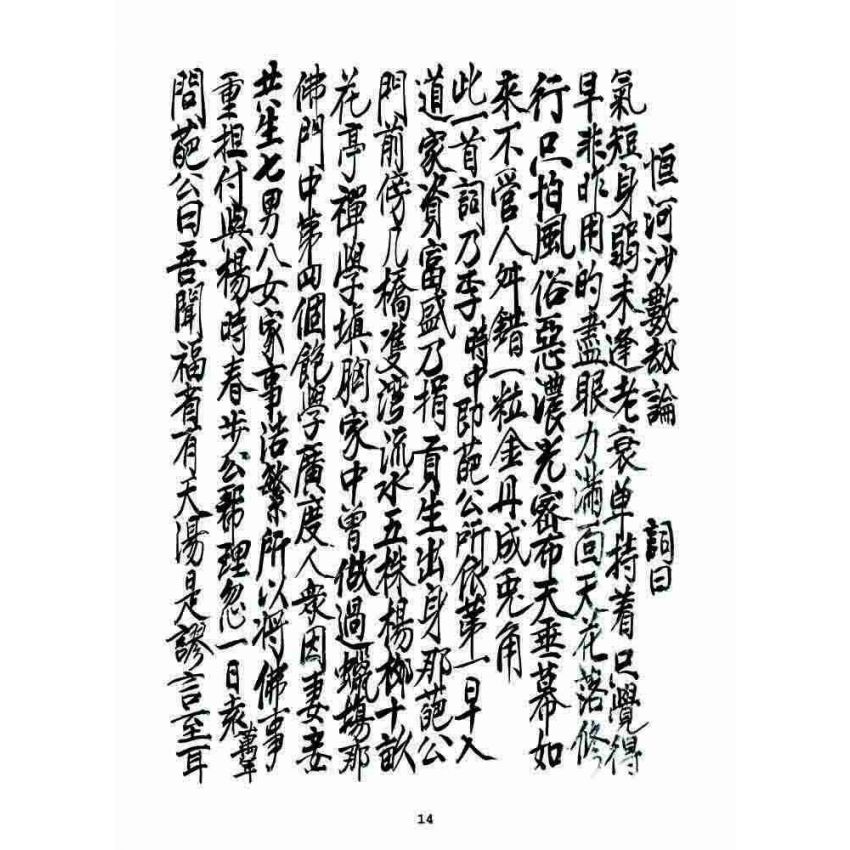 恒河沙數劫論 詞曰
氣短身弱未逢老衰单持着只覺得
早非昨用的盡眼力滿面天花落修
行只怕風俗惡濃光密布天垂幕如
來不管人舛錯一粒金丹成兎角
此一首詞乃李時中助葩公所依第一早入
道家資富盛乃捐貢生出身那葩公
門前傍几橋雙湾流水五株楊栁十畝
花亭禪學填胸家中曾做過蠟塲那
佛門中第四個飽學廣度人衆因妻妾
共生七男八女家事浩繁所以将佛事
重担付與楊時春步公辦理忽一日袁萬年
問葩公曰吾聞福者有天湯是謬言至耳
14